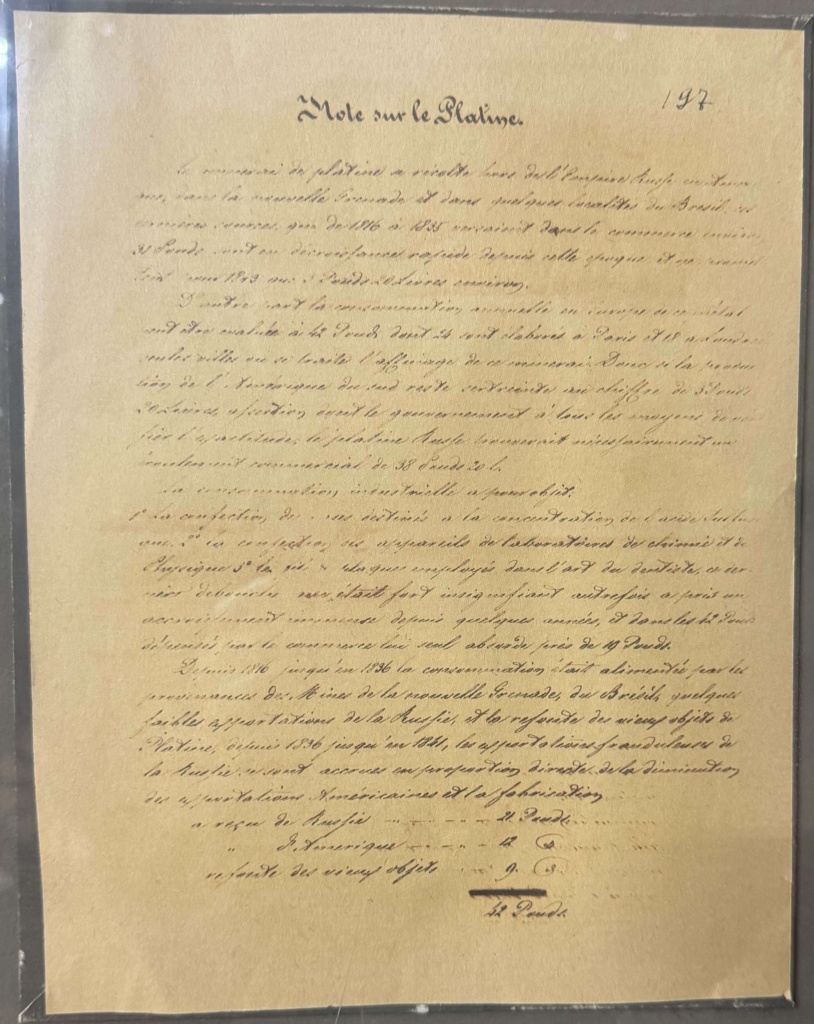 197
Note sur le Platine.
Le minerai de platine a récolte hors de l'Empire Russe
dans la nouvelle Grenade et dans quelques localités du Brésil,
dernières sources, qui de 1816 à 1835 versaient dans le commerce environ
33 Pouds sont en décroissance rapide depuis cette époque et
pour 1843 aux 3 Pouds 20 Livres environ.
D'autre part la consommation annuelle en Europe de ce métal
peut être evaluée à 42 Pouds dont 24 sont élaborés à Paris et 18 a Londres
seules villes ou se traite l'affinage de ce minerai. Donc si la
tion de l'Amérique du sud reste restreinte au chiffre de 3 Pouds
20 Livres, assertion dont le gouvernement à tous les moyens de
l'exactitude, le platine Russe trouverait nécessairement un
écoulement commercial de 38 Pouds 20 l.
La consommation industrielle a pour objet.
1° La confection de destinés a la concentration de l'acide
2° la confection des appareils de laboratoires de chimie et de
Physique 3° les employés dans l'art du dentiste, ce der-
nier debouché était fort insignifiant autrefois a pris un
accroissement immense depuis quelques années, et dans les 42 Pouds
dépensés par le commerce lui seul absorbe près de 19 Pouds.
Depuis 1816 jusqu'en 1836 la consommation était alimentée par les
provenances des Mines de la nouvelle Grenade, du Brésil, quelques
faibles exportations de la Russie, et la refonte des vieux objets de
Platine, depuis 1836 jusqu'en 1841, les exportations frauduleuses de
la Russie se sont accrues en proportion directe de la diminution
des exportations Américaines et la fabrication
a reçu de Russie " - " - - 21 Pouds.
" d'Amerique - - - - 12 d.
refonte des vieux objets 9. d.
42 Pouds.